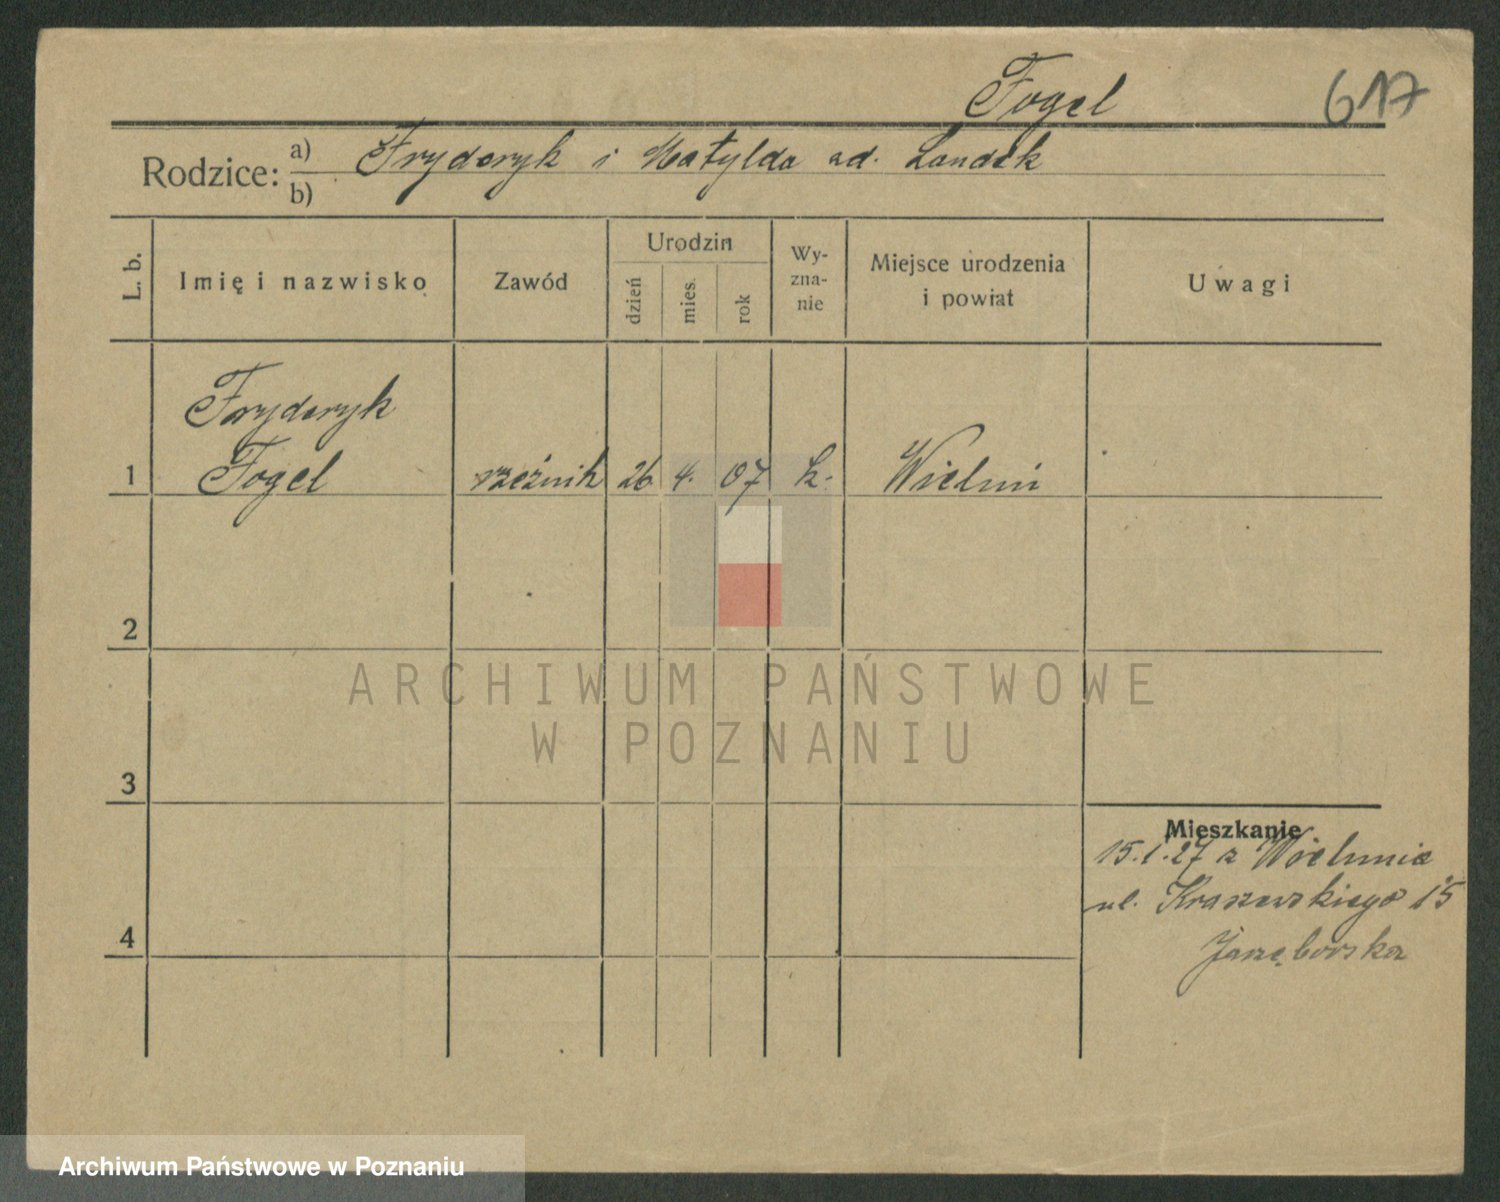 Fogel 617
Rodzice: a) Fryderyk i Matylda
b)
L. b.
Imię i nazwisko
Zawód
Urodzin
dzień
mies.
rok
Wy-
zna-
nie
Miejsce urodzenia
i powiat
Uwagi
Fryderyk
1 Fogel rzeźnik 26 4. 07 k. Wieluń
2
3
4
Mieszkanie
15.1.27 z Wielunia
ul. Kraszewskiego 15
ARCHIWUM PAŃSTWOWE
W POZNANIU
Archiwum Państwowe w Poznaniu